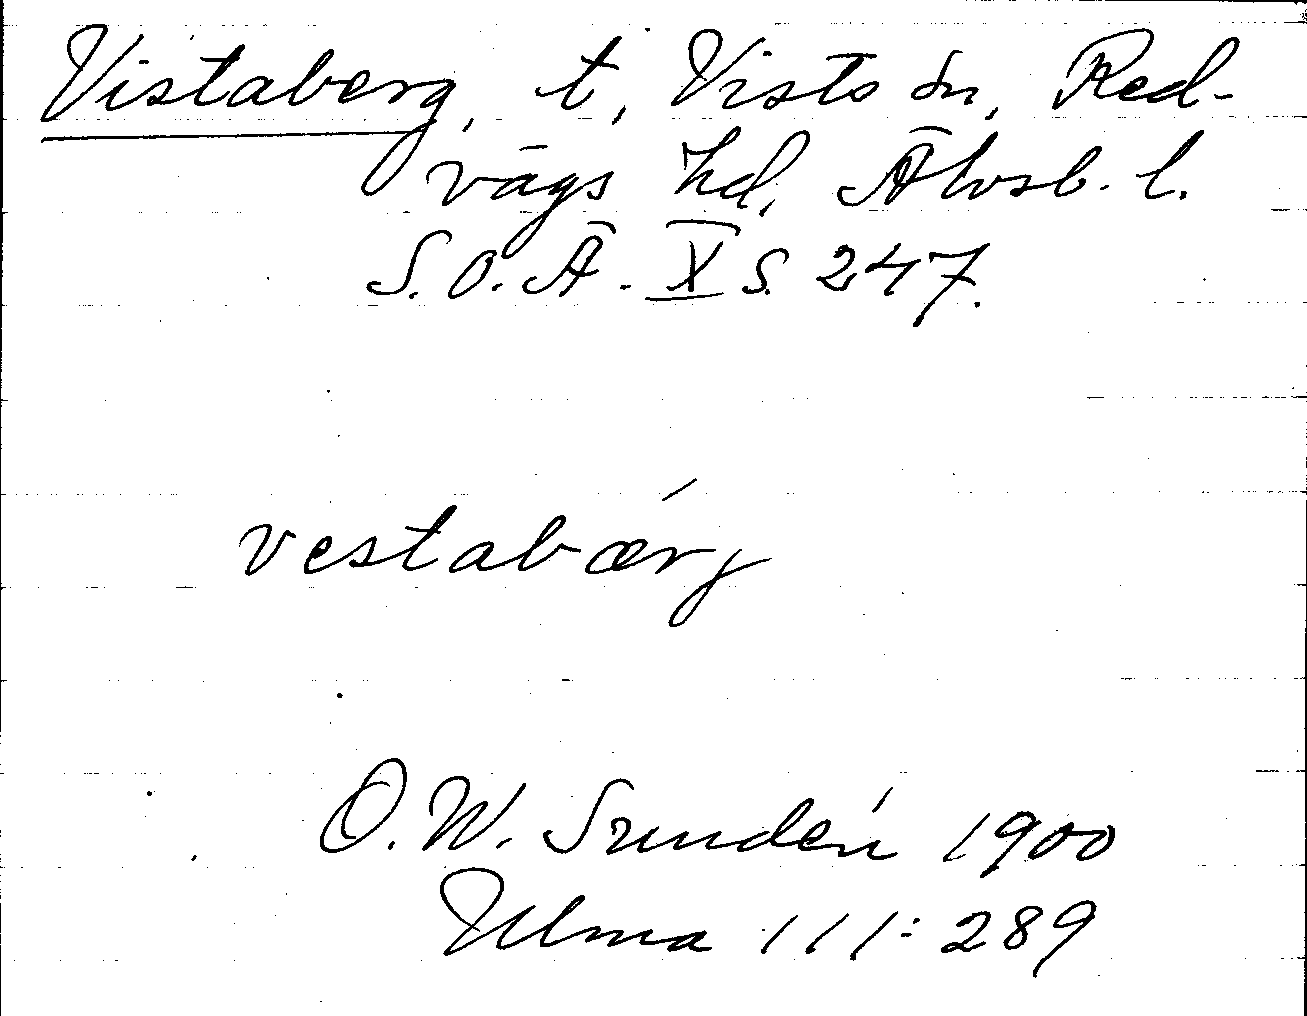 Vistaberg, t, Vists sn, Red-
vägs hd, Älvsb. l.
S.O.Ä. X s. 247.
vestabærj
O.W. Sundén 1900
Ulma 111:289